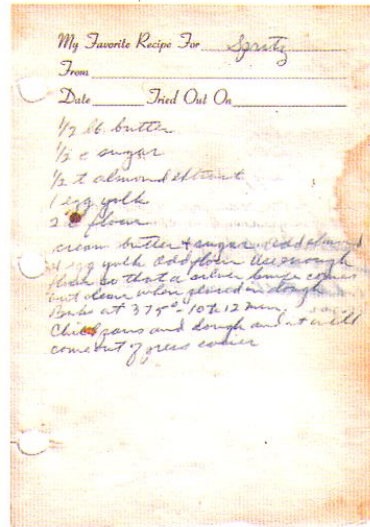 My Favorite Recipe For Spritz
From
Date Tried Out On
1/2 lb. butter
1/2 c sugar
1/2 t almond extract
1 egg yolk
2 c flour
cream butter & sugar. add almond
& egg yolk add flour Use enough
flour so that a silver knife comes
out clean when placed in dough
Bake at 375° - 10 to 12 min.
Chill pans and dough and it will
come out of press easier